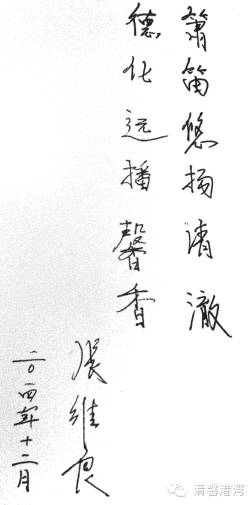 箫笛悠扬清澈
德化远播馨香
张维良
二〇一四年十二月
清馨港湾